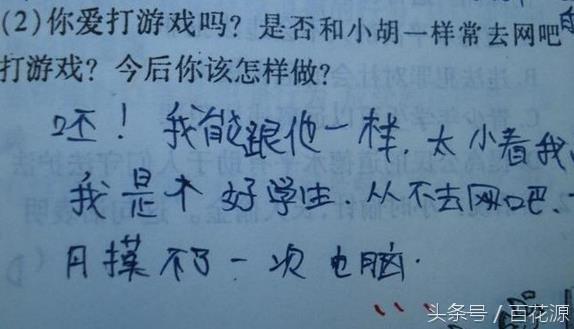 (2)你爱打游戏吗？是否和小胡一样常去网吧
打游戏？今后你该怎样做？
呸！我能跟他一样，太小看我
我是个好学生。从不去网吧、
月摸不了一次电脑.
头条号／百花源